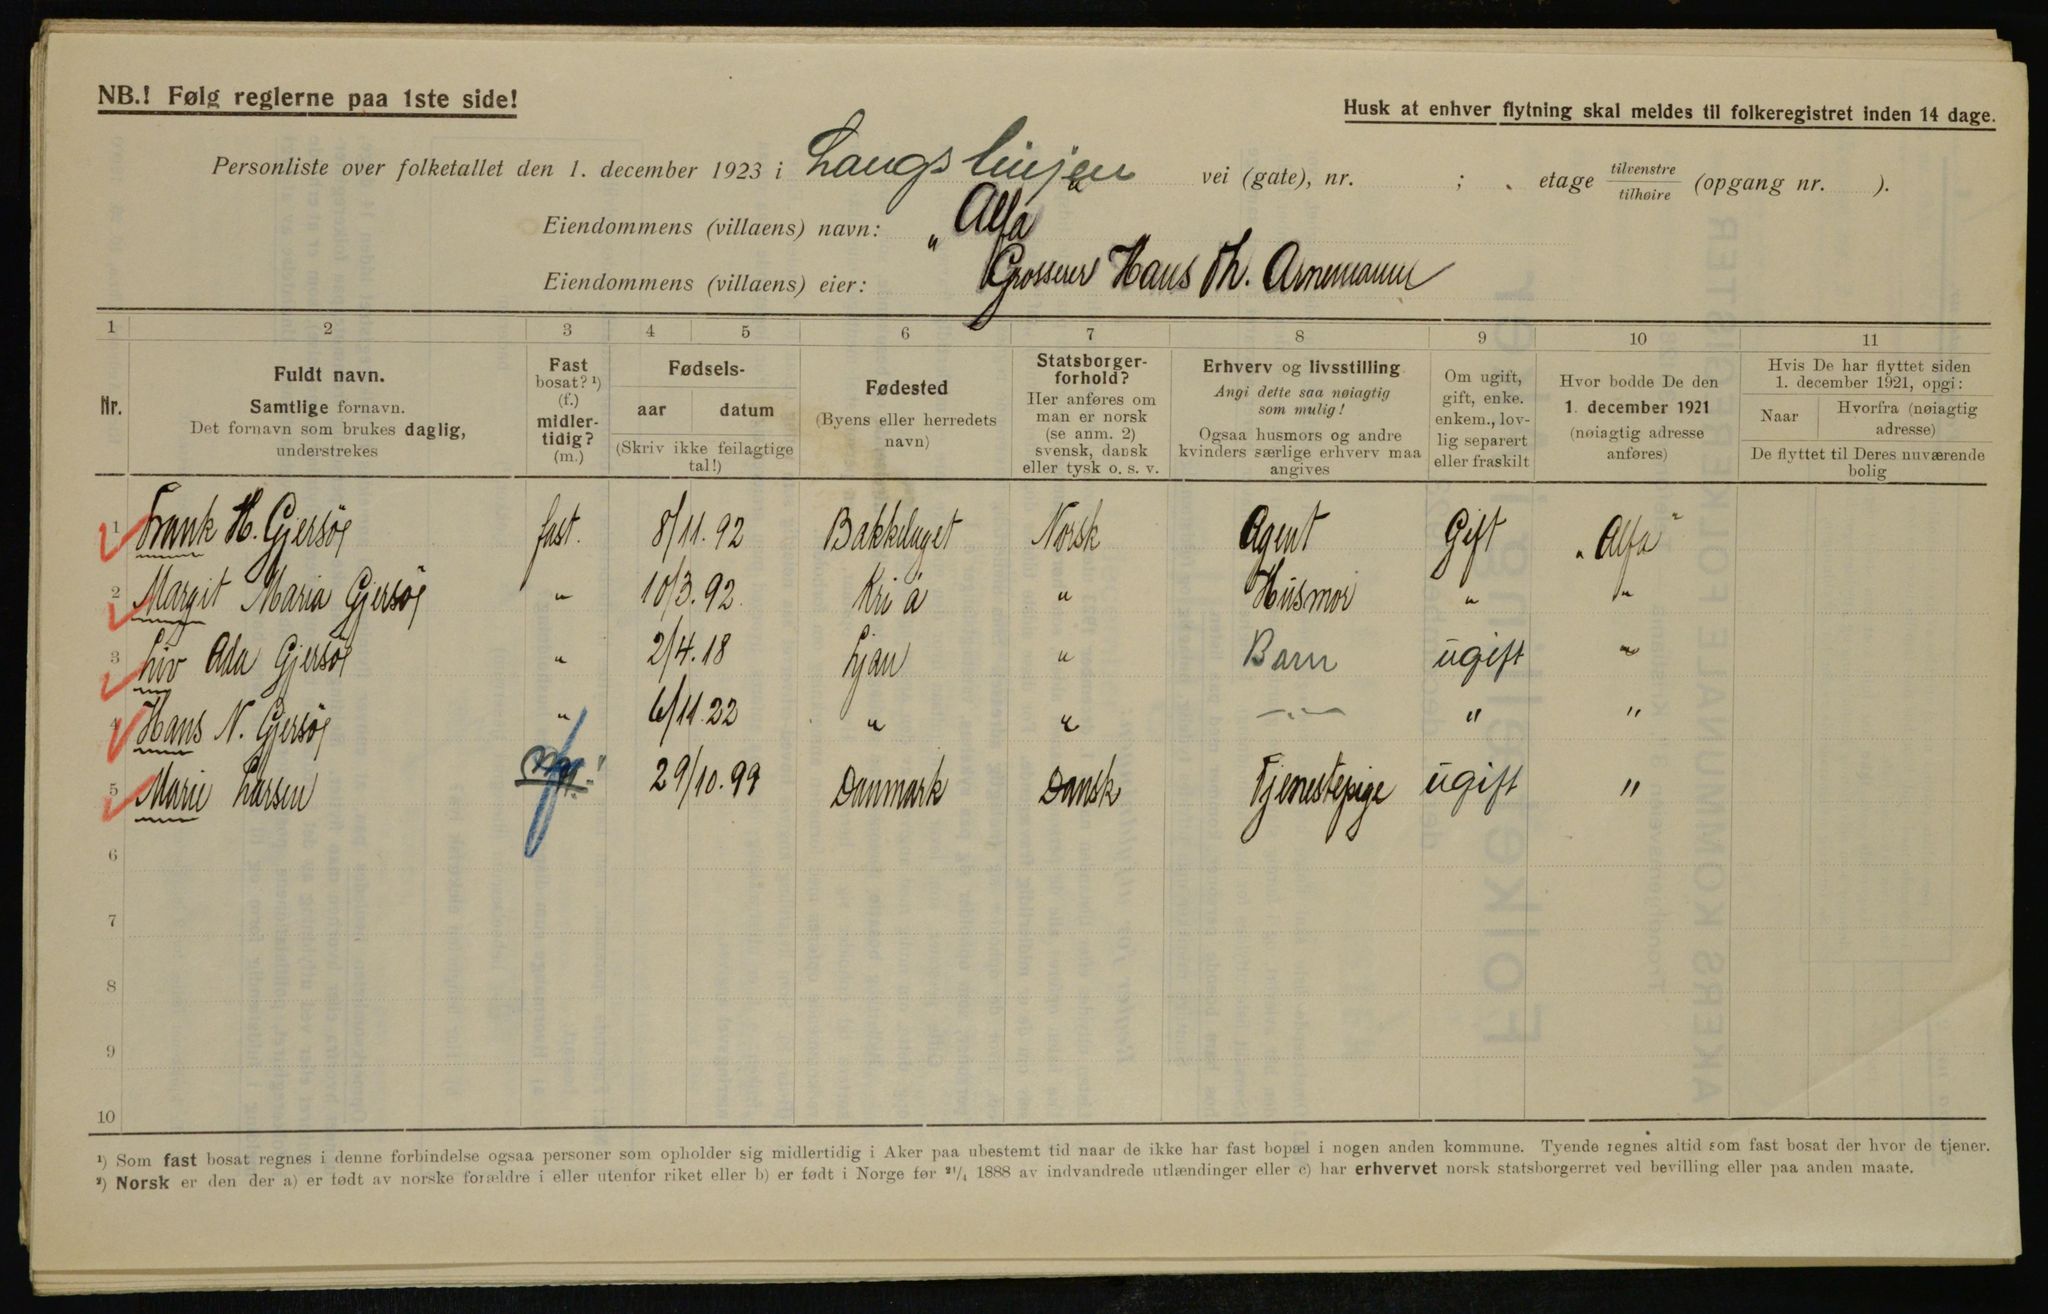 NB.! Følg reglerne paa 1ste side!
Husk at enhver flytning skal meldes til folkeregistret inden 14 dage.
Personliste over folketallet den 1. december 1923 i Langslinjen vei (gate), nr. ; etage tilvenstre/tilhøire (opgang nr. ).
Eiendommens (villaens) navn: „Alfa"
Eiendommens (villaens) eier: Grosserer Hans Th. Arnemann
1 2 3 4 5 6 7 8 9 10 11
Nr.
Fuldt navn.
Samtlige fornavn.
Det fornavn som brukes daglig,
understrekes
Fast
bosat? ¹)
(f.)
midler-
tidig?
(m.)
Fødsels-
aar datum
(Skriv ikke feilagtige
tal!)
Fødested
(Byens eller herredets
navn)
Statsborger-
forhold?
Her anføres om
man er norsk
(se anm. 2)
svensk, dansk
eller tysk o. s. v.
Erhverv og livsstilling
Angi dette saa nøiagtig
som mulig!
Ogsaa husmors og andre
kvinders særlige erhverv maa
angives
Om ugift,
gift, enke.
enkem., lov-
lig separert
eller fraskilt
Hvor bodde De den
1. december 1921
(nøiagtig adresse
anføres)
Hvis De har flyttet siden
1. december 1921, opgi:
Naar Hvorfra (nøiagtig
adresse)
De flyttet til Deres nuværende
bolig
1 Frank H. Gjersöe fast. 8/11. 92 Bakkelaget Norsk Agent Gift „Alfa"
2 Margit Maria Gjersöe " 10/3. 92. Kri a " Husmor " "
3 Liv Ada Gjersöe " 2/4. 18 Ljan " Barn ugift "
4 Hans N. Gjersöe " 6/11. 22 " " — " — " "
5 Marie Larsen 29/10. 99 Danmark Dansk Tjenestepige ugift "
6
7
8
9
10
¹) Som fast bosat regnes i denne forbindelse ogsaa personer som opholder sig midlertidig i Aker paa ubestemt tid naar de ikke har fast bopæl i nogen anden kommune. Tyende regnes altid som fast bosat der hvor de tjener.
²) Norsk er den der a) er født av norske forældre i eller utenfor riket eller b) er født i Norge før ²¹/₄ 1888 av indvandrede utlændinger eller c) har erhvervet norsk statsborgerret ved bevilling eller paa anden maate.